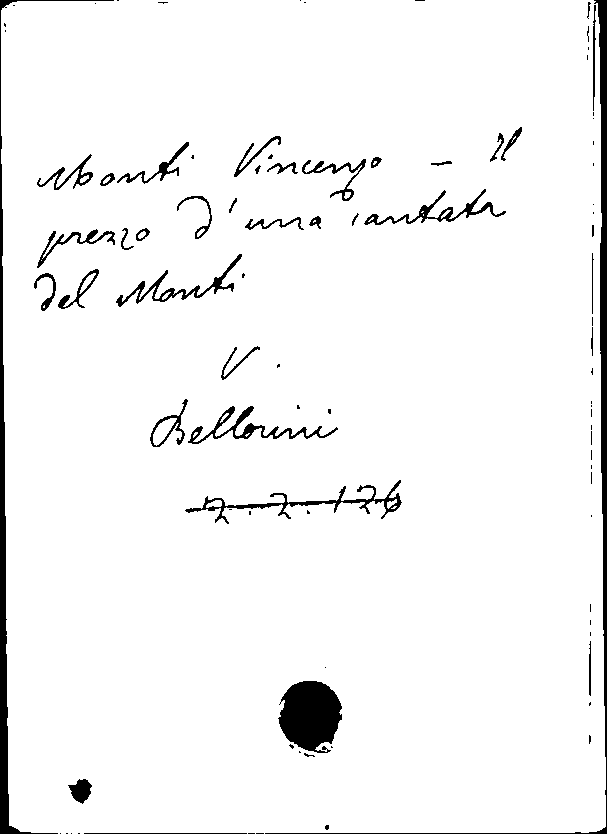 Monti Vincenzo - Il
prezzo d'una cantata
del Monti
V.
Bellorini
2.2.126